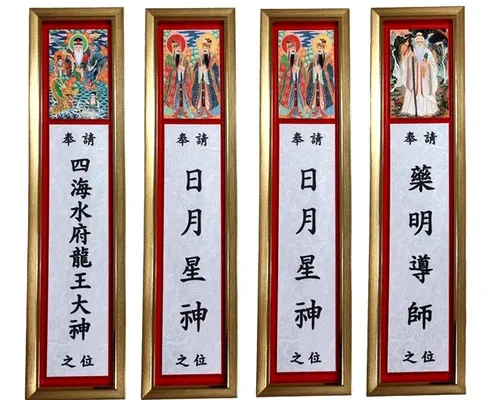 奉請
四海水府龍王大神
之位
奉請
日月星神
之位
奉請
日月星神
之位
奉請
藥明導師
之位